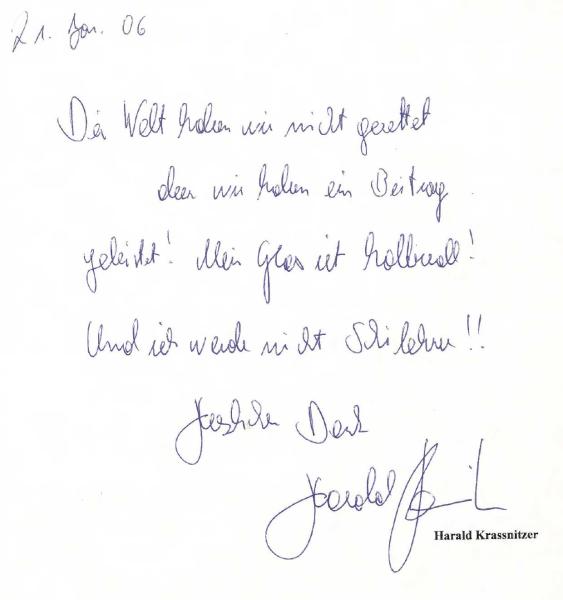 21. Jan. 06
Die Welt haben wir nicht gerettet
aber wir haben ein Beitrag
geleistet! Mein Glas ist halbvoll!
Und ich werde nicht Schilehrer!!
Herzlichen Dank
Harald
Harald Krassnitzer